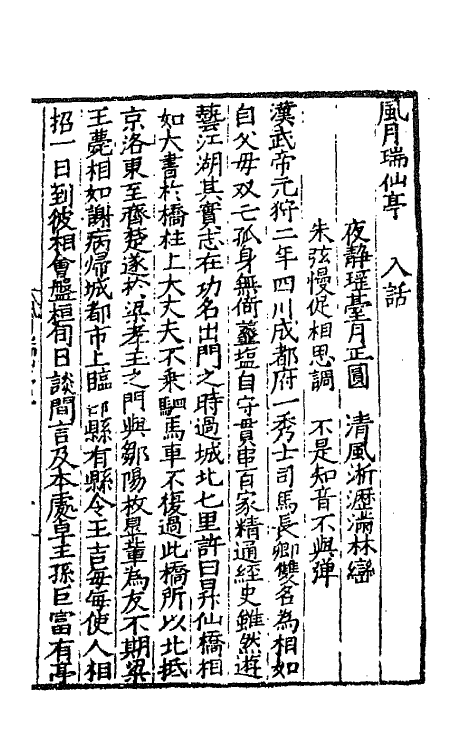 風月瑞仙亭　入話
夜靜瑤臺月正圓　清風淅瀝滿林巒
朱弦慢促相思調　不是知音不與彈
漢武帝元狩二年四川成都府一秀士司馬長卿雙名為相如
自父母双亡孤身無倚虀塩自守貫串百家精通經史雖然遊
藝江湖其實志在功名出門之時過城北七里許曰昇仙橋相
如大書於橋柱上大丈夫不乘駟馬車不復過此橋所以北抵
京洛東至齊楚遂於梁孝王之門與鄒陽枚臯輩為友不期梁
王薨相如謝病歸城都市上臨邛縣有縣令王吉每每使人相
招一日到彼相會盤桓旬日談間言及本處卓王孫巨富有亭